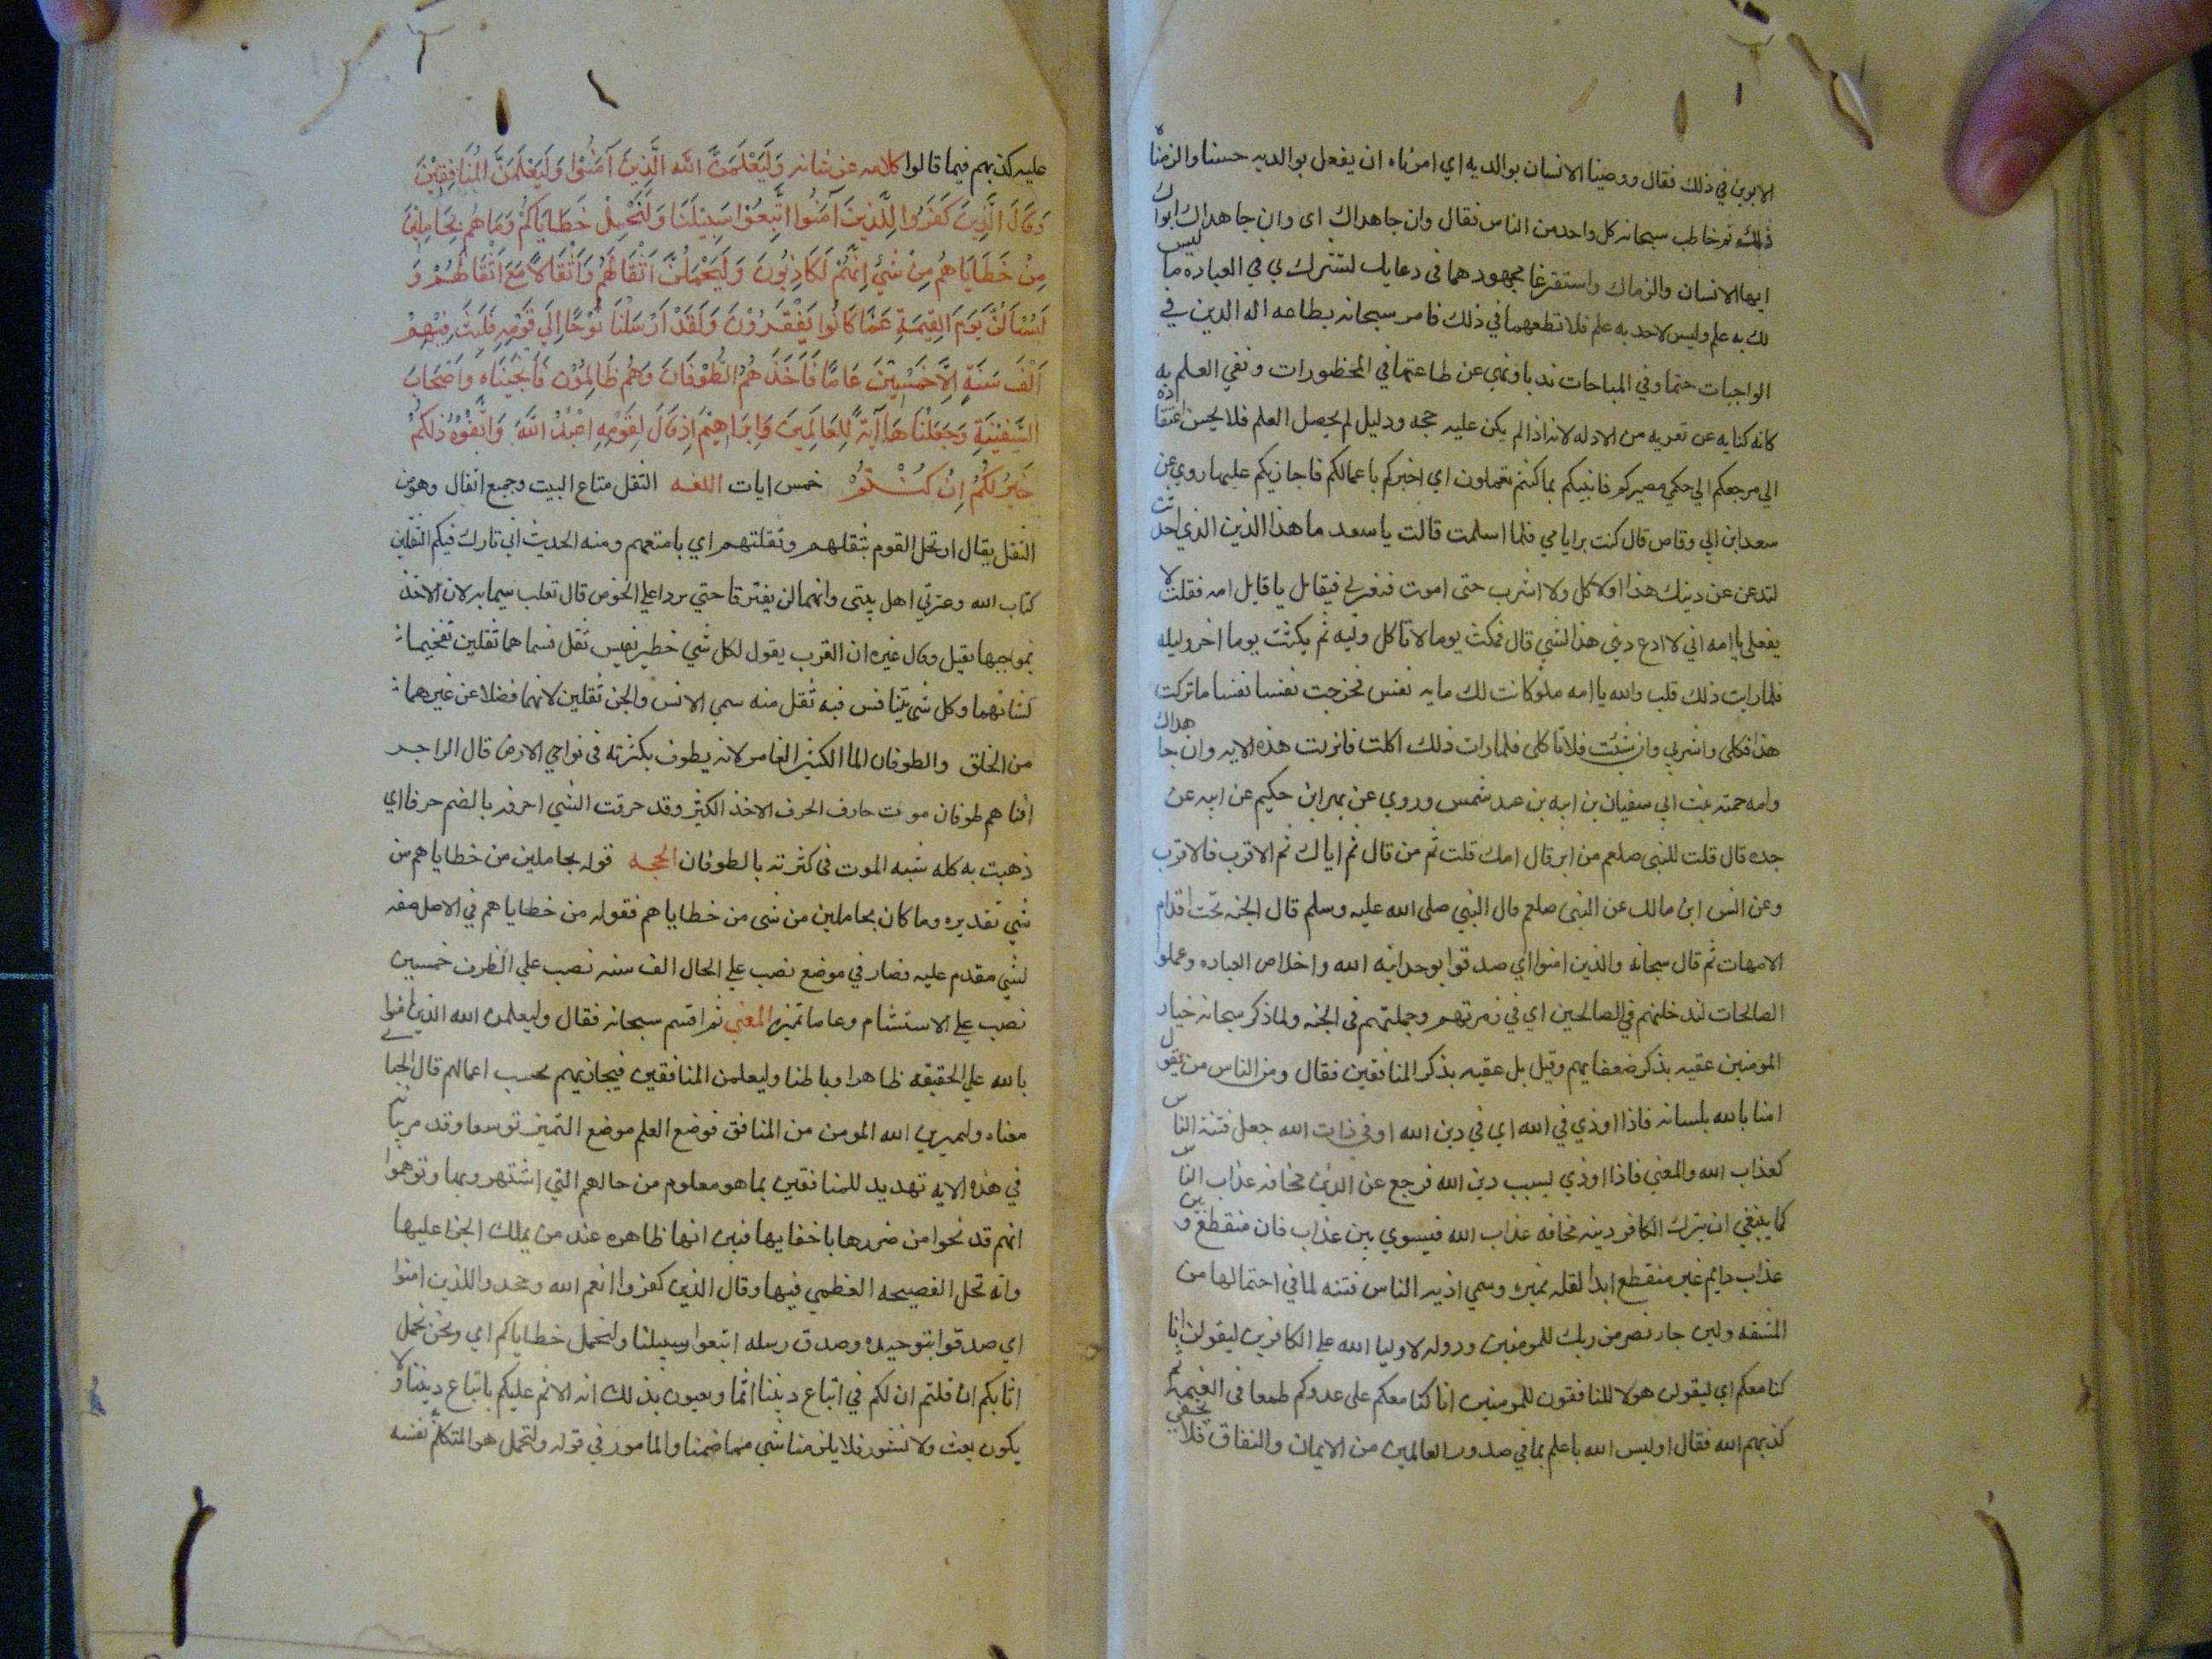 الابوين في ذلك فقال ووصينا الانسان بوالديه اي امرناه ان يفعل بوالديه حسنا والزمناه
ذلك ثم خاطب سبحانه كل واحد من الناس فقال وان جاهداك اى وان جاهداك ابواك
ايها الانسان والزماك واستفرغا مجهودهما فى دعايك لتشرك بي في العباده ما ليس
لك به علم وليس لاحد به علم فلا تطعهما في ذلك فامر سبحانه بطاعه الدين في
الواجبات حتما وفي المباحات ندبا ونهي عن طاعتهما في المحظورات ونفي العلم به
كانه كنايه عن تعريه من الادله لانه اذا لم يكن عليه حجه ودليل لم يحصل العلم فلا يحسن اعتقاده
الي مرجعكم الي حكمي مصيركم فانبئكم بما كنتم تعملون اي اخبركم باعمالكم فاجازيكم عليها روي عن
سعد ابن ابي وقاص قال كنت برا بامي فلما اسلمت قالت يا سعد ما هذا الدين الذي احدثت
لتدعن عن دينك هذا او لا اكل ولا اشرب حتى اموت فتعير بي فيقال يا قاتل امه فقلت لا
تفعلي يا امه اني لا ادع ديني هذا لشي قال فمكثت يوما لا تاكل وليله ثم مكثت يوما اخر وليله
فلما رايت ذلك قلت والله يا امه فلو كانت لك مايه نفس فخرجت نفسا نفسا ما تركت
هذا فكلى واشربي وان شئت فلا تاكلى فلما رات ذلك اكلت فانزلت هذه الايه وان جاهداك
وامه حمنه بنت ابي سفيان بن اميه بن عبد شمس وروي عن بهز ابن حكيم عن ابيه عن
جده قال قلت للنبى صلعم من ابر قال امك قلت ثم من قال ثم اباك ثم الاقرب فالاقرب
وعن انس ابن مالك عن النبى صلعم قال النبي صلى الله عليه وسلم قال الجنه تحت اقدام
الامهات ثم قال سبحانه والذين امنوا اي صدقوا بوحدانيه الله واخلاص العباده وعملوا
الصالحات لندخلنهم في الصالحين اي في زمرتهم وجملتهم فى الجنه ولما ذكر سبحانه خيار
المومنين عقبه بذكر ضعفايهم وقيل بل عقبه بذكر المنافقين فقال ومن الناس من يقول
امنا بالله بلسانه فاذا اوذي في الله اي في دين الله او فى ذات الله جعل فتنة الناس
كعذاب الله والمعني فاذا اوذي بسبب دين الله فرجع عن الدين مخافه عذاب الناس
كما ينبغي ان يترك الكافر دينه مخافه عذاب الله فيسوي بين عذاب فان منقطع وبين
عذاب دايم غير منقطع ابدا لقله تميزه وسمي اذيه الناس فتنه لما في احتمالها من
المشقه ولين جا نصر من ربك للمومنين ودوله لاوليا الله علي الكافرين ليقولن انا
كنا معكم اي ليقولن هولا المنافقون للمومنين انا كنا معكم على عدوكم طمعا فى الغنيمه ثم
كذبهم الله فقال اوليس الله باعلم بما في صدور العالمين من الايمان والنفاق فلا يخفي
عليه كذبهم فيما قالوا كلامه عن شانه وَلَيَعْلَمَنَّ اللَّه الَّذِينَ آمَنُوْا وَلَيَعْلَمَنَّ المُنَافِقِيْنَ
وَقَالَ الَّذِينَ كَفَرُوا لِلَّذِينَ آمَنُوا اتَّبِعُوْا سَبِيْلَنَا وَلْنَحْمِلْ خَطَايَاكُمْ وَمَا هُمْ بِحَامِلِيْنَ
مِنْ خَطَايَاهُمْ مِنْ شَيْءٍ اِنَّهُمْ لَكَاذِبُونَ وَلَيَحْمِلُنَّ اَثْقَالَهُمْ وَاَثْقَالًا مَعَ اَثْقَالِهُمْ وَ
لَيُسْاَلُنَّ يَوْمَ القِيمَةِ عَمَّا كَانُوا يَفْتَرُوْنَ وَلَقَدْ اَرْسَلْنَا نُوْحًا اِلَي قَوْمِهِ فَلَبِثَ فِيْهِمْ
اَلْفَ سَنَةٍ اِلَّا خَمْسِيْنَ عَامًا فَاَخَذَهُمُ الطُّوْفَانَ وَهُمْ ظَالِمُوْنَ فَاَنْجَيْنَاهُ وَاَصْحَابَ
السَّفِيْنَةِ وَجَعَلْنَاهَا آيَةً لِلْعَالَمِينَ وَاِبْرَاهِيْمَ اِذ قَالَ لِقَوْمِهِ اعْبُدُ اللَّهَ وَاتَّقُوْهُ ذَلِكُمْ
خَيْرٌ لَكُمْ اِنْ كُنْتُمْ خمس ايات اللغه الثقل متاع البيت وجمع اثقال وهو من
الثقل يقال ارتحل القوم بثقلهم وثقلتهم اي بامتعتهم ومنه الحديث اني تارك فيكم الثقلين
كتاب الله وعترتي اهل بيتى وانهما لن يفترقا حتي يردا علي الحوض قال ثعلب سميا به لان الاخذ
بموجبهما ثقيل وقال غيره ان العرب يقول لكل شي خطير نفيس ثقل فسماهما ثقلين تفخيما
لشانهما وكل شي يتنافس فيه ثقل منه سمي الانس والجن ثقلين لانهما فضلا عن غيرهما
من الخلق والطوفان الما الكثير الغامر لانه يطوف بكثرته فى نواحي الارض قال الراجز
افناهم طوفان موت جارف الجرف الاخذ الكثير وقد جرفت الشي اجرفه بالضم جرفا اي
ذهبت به كله شبه الموت فى كثرته بالطوفان الحجه قوله بحاملين من خطاياهم من
شي تقديره وما كان بحاملين من شى من خطاياهم فقوله من خطاياهم في الاصل صفه
لشي مقدم عليه فصار في موضع نصب علي الحال الف سنه نصب علي الظرف خمسين
نصب علي الاستثنا وعاما تميز المعني ثم اقسم سبحانه فقال وليعلمن الله الذين امنوا
بالله علي الحقيقه ظاهرا وباطنا وليعلمن المنافقين فيجازيهم بحسب اعمالهم قال الجباي
معناه وليميزن الله المومن من المنافق فوضع العلم موضع التميز توسعا وقد مر بيانه
في هذه الايه تهديد للمنافقين بما هو معلوم من حالهم التي اشتهر وبها وتوهموا
انهم قد نجوا من ضررها باخفايها فبين انها ظاهره عند من يملك الجزا عليها
وانه تحل الفضيحه العظمي فيها وقال الذين كفروا نعم الله وجحدوا للذين امنوا
اي صدقوا بتوحيده وصدق رسله اتبعوا سبيلنا ولنحمل خطاياكم اي ونحن نحمل
اثامكم ان قلتم ان لكم في اتباع ديننا اثما ويعنون بذلك انه لا اثم عليكم باتباع ديننا ولا
يكون بعث ولا نشور فلا يلزمنا شي مما ضمنا والمامور في قوله ولنحمل هو المتكلم نفسه